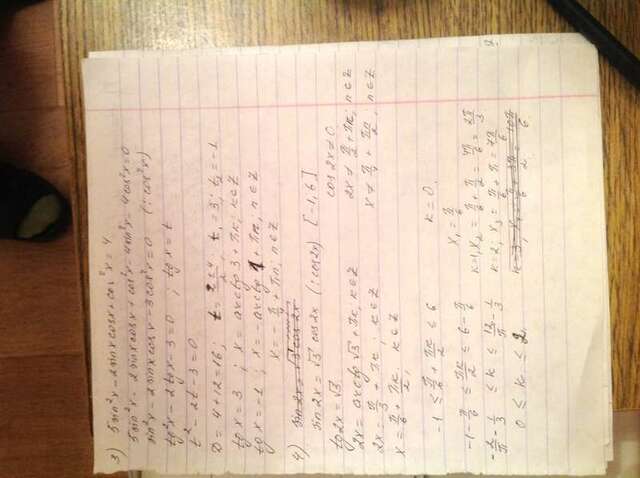 3) 5sin²x - 2sinxcosx + cos²x = 4
5sin²x - 2sinxcosx + cos²x - 4sin²x - 4cos²x = 0
sin²x - 2sinxcosx - 3cos²x = 0 (:cos²x)
tg²x - 2tgx - 3 = 0 ; tgx = t
t² - 2t - 3 = 0
D = 4 + 12 = 16; t = (2±4)/2 t₁ = 3; t₂ = -1
tgx = 3 ; x = arctg3 + πk; k∈Z
tgx = -1 ; x = -arctg1 + πn, n∈Z
x = -π/4 + πn; n∈Z
4) sin2x = √3 cos2x
sin2x = √3 cos2x (:cos2x) [-1; 6]
cos2x ≠ 0
tg2x = √3
2x = arctg√3 + πk, k∈Z
2x ≠ π/2 + πn; n∈Z
2x = π/3 + πk; k∈Z
x ≠ π/4 + πn/2, n∈Z
x = π/6 + πk/2, k∈Z
-1 ≤ π/6 + πk/2 ≤ 6
-1 - π/6 ≤ πk/2 ≤ 6 - π/6
-2/π - 1/3 ≤ k ≤ 12/π - 1/3
0 ≤ k ≤
k = 0.
x₁ = π/6
k=1, x₂ = π/6 + π/2 = 4π/6 = 2π/3
k=2; x₃ = π/6 + π = 7π/6